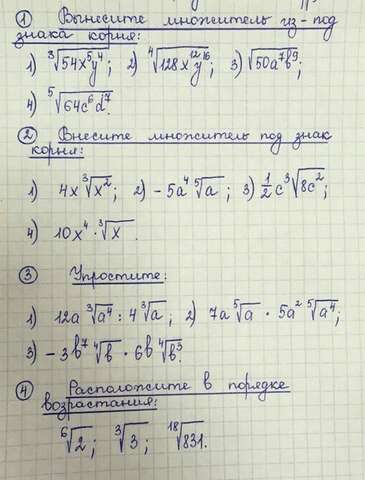 ① Вынесите множитель из-под
знака корня:
1) ∛(54x⁵y⁴); 2) ∜(128x¹²y¹⁶); 3) √(50a⁷b⁹);
4) ⁵√(64c⁶d⁷).
② Внесите множитель под знак
корня:
1) 4x ∛(x²); 2) -5a⁴ ⁵√a; 3) ½ c³ √(8c²);
4) 10x⁴ · ∛x.
③ Упростите:
1) 12a ∛(a⁴) : 4 ∛a; 2) 7a ⁵√a · 5a² ⁵√(a⁴);
3) -3b⁷ ∜b · 6b ∜(b³).
④ Расположите в порядке
возрастания:
⁶√2; ∛3; ¹⁸√831.